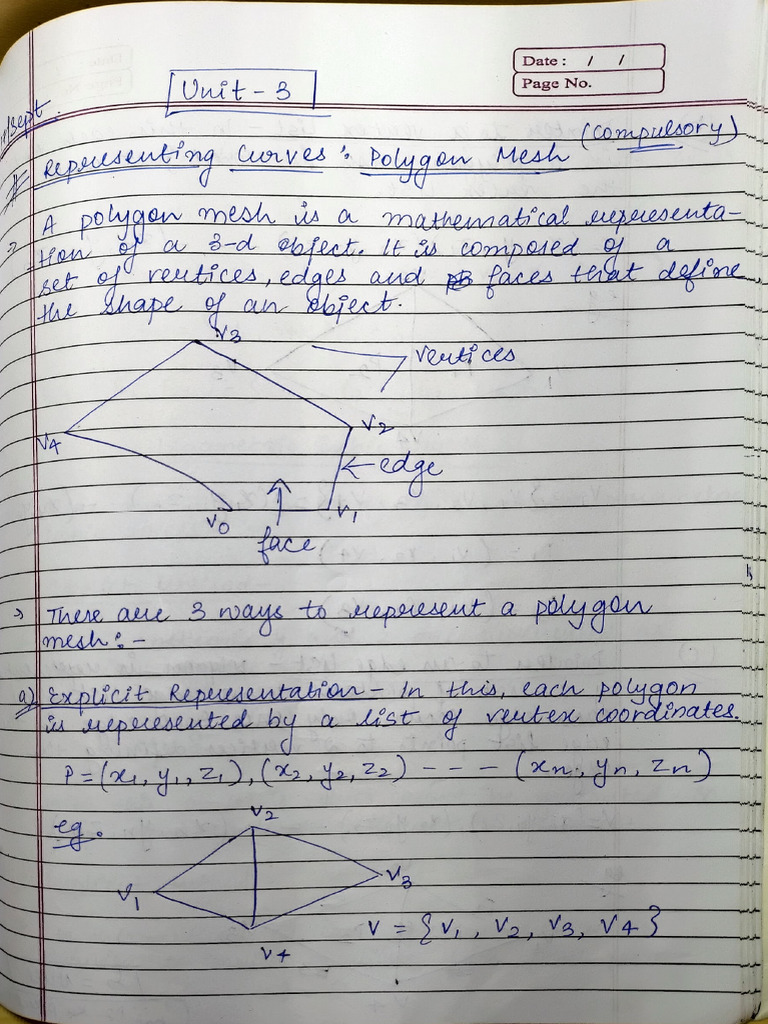 Unit - 3
Date : / /
Page No.
(Compulsory)
Representing Curves : Polygon Mesh
→ A polygon mesh is a mathematical representa-
tion of a 3-d object. It is composed of a
set of vertices, edges and faces that define
the shape of an object.
V3
vertices
V4
V2
← edge
V0
V1
face
→ There are 3 ways to represent a polygon
mesh : -
a) Explicit Representation - In this, each polygon
is represented by a list of vertex coordinates.
P = (x1, y1, z1), (x2, y2, z2) - - - (xn, yn, zn)
eg.
V2
V1
V3
V = {V1, V2, V3, V4}
V4